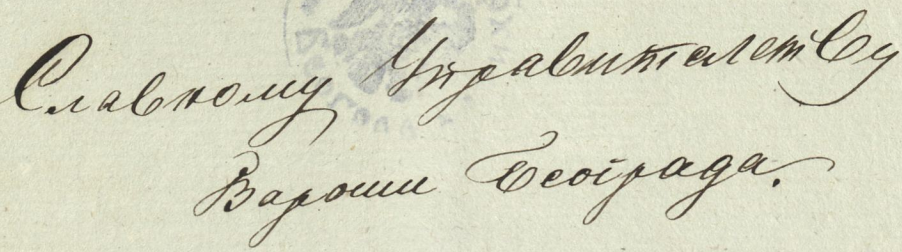 Славному Управителству
Вароши Београда.